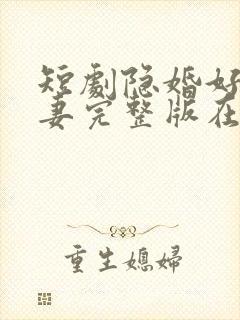 短劇隐婚好
妻完整版在
重生媳婦